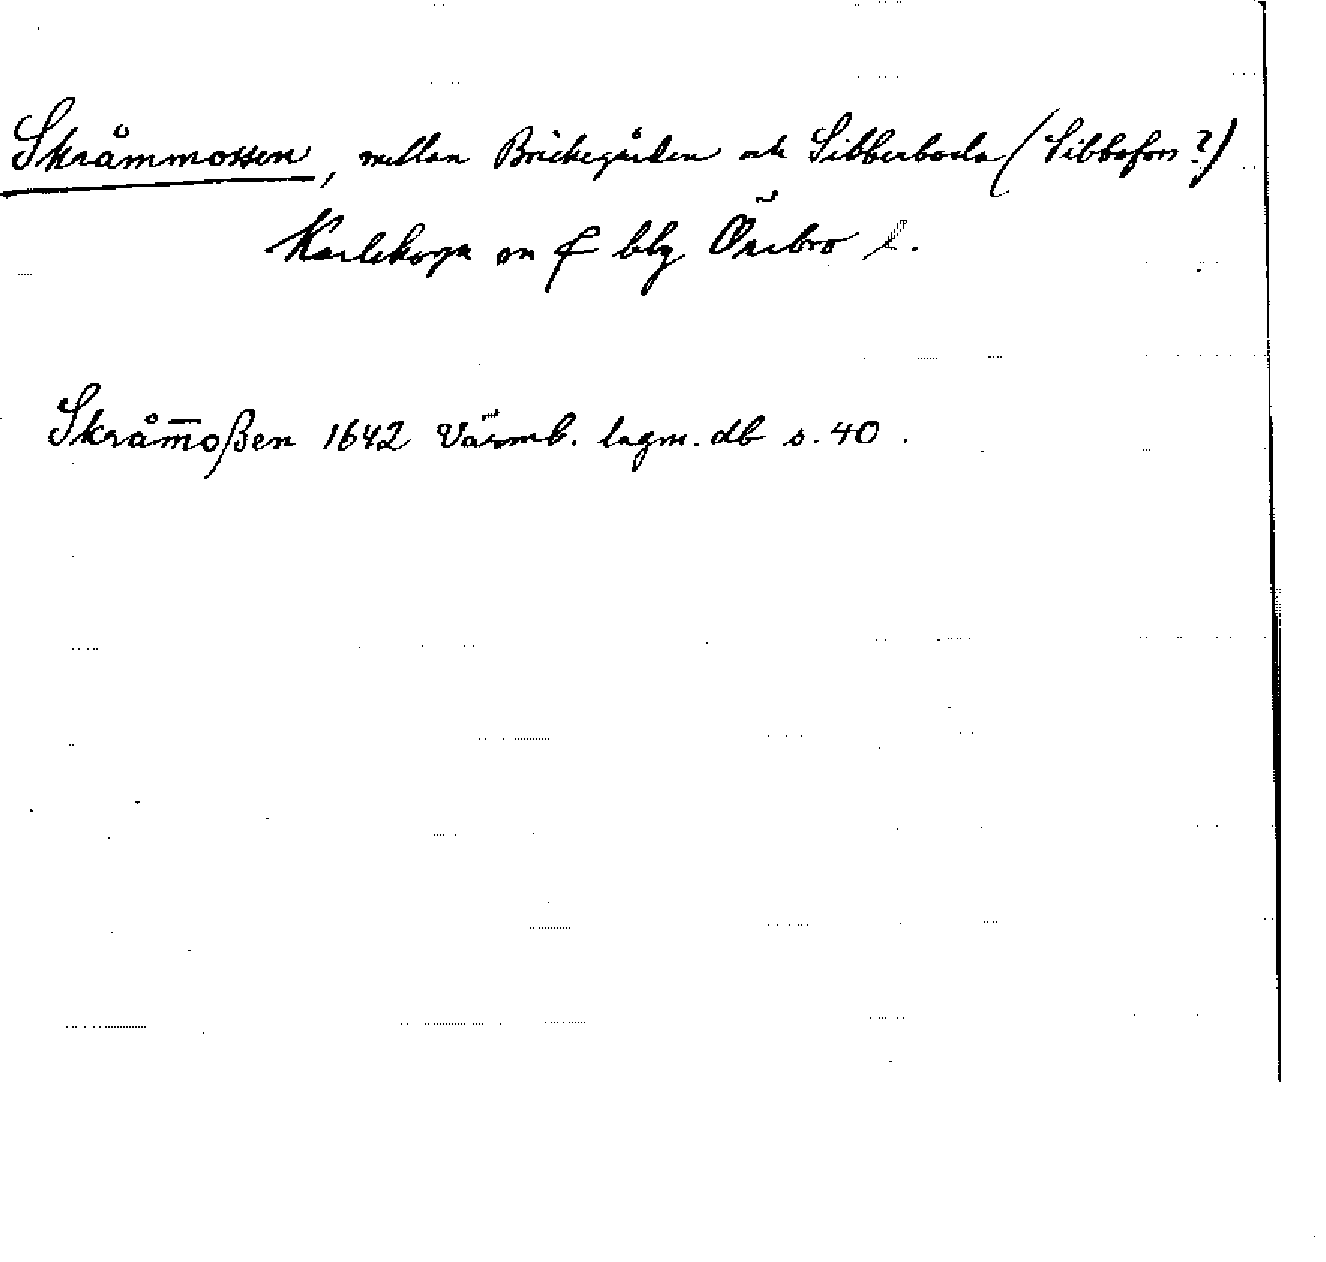 Skråmmossen, mellan Brickegården och Sibberboda (Sibbofors?)
Karlskoga sn o f bbg Örebro l.
Skråm̅oßen 1642 Värml. lagm. db s. 40.